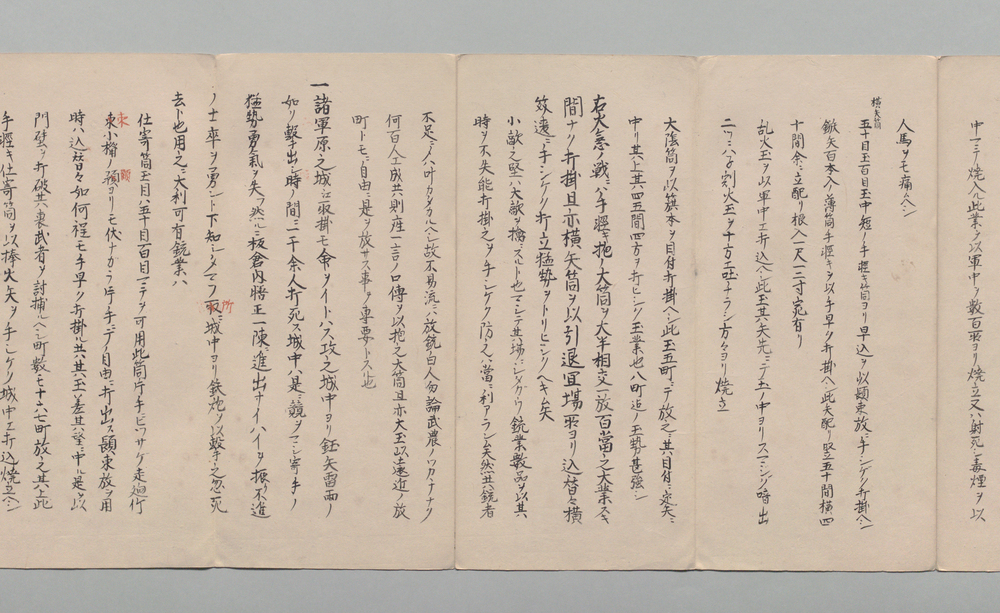 中ニテ焼入ル此業ヲ以軍中ノ数百所ヨリ焼立又ハ射死シ毒煙ヲ以
人馬ヲモ痛ヘシ
横矢筒
五十目玉百目玉中短ノ手軽キ筒ヨリ早込ヲ以顕東放シ手シゲク打掛ヘシ
鏃矢百本入ノ薄筒手軽キヲ以手早ク打掛ヘシ此矢配リ竪五十間横四
十間余ニ立配リ根入一尺一二寸宛有リ
乱火玉ヲ以軍中エ打込ヘシ此玉其矢先ニテ玉ノ中ヨリスマシク時出
ニツハ子割火玉ヲ十方エ吐ナラシ方々ヨリ焼立
大陰筒ヲ以籏本ヲ目付打掛ヘシ此玉五町ニテ放之其目付ニ定矢ニ
中リ其上其四五間四方ヲ打ヒシク玉業也八町迄ノ玉勢甚強シ
右火急ノ戦ニハ手軽キ抱ノ大筒ヲ大半相交一放百當之大業スキ
間ナク打掛且亦横矢筒ヲ以引退宜場所ヨリ込替々横
矢ニ手シゲク打立猛勢ヲトリヒシクヘキ矣
小敵之堅ハ大敵ノ擒ニスルト也マシテ其場ニシメクリ銃業数品ヲ以其
時ヲ不失能打掛之ヲ手シゲク防之當ニ利アラン矣然共銃者
不足ニハ叶カタカルヘシ故不易流ニハ放銃ノ百人勿論武農ノワカチナク
何百人工成共則座一言ノ口傳ヲ以抱之大筒且亦大玉以遠近ノ放
町トモニ自由ニ是ヲ放サス事ヲ専要トスル也
一諸軍原之城ニ取掛モ命ヲイトハス攻之城中ヨリ鉦矢雷雨ノ
如リ撃出シ時ノ間ニ二千余人打死ス城中ハ是ニ競ヲマシ寄手ノ
猛勢勇気ヲ失フ然ルニ板倉内膳正一陳ニ進出サイハイヲ振不進
ノ士卒ヲ勇ント下知シタマフ取所城中ヨリ鉄炮ヲ以撃之忽死
去ト也用之ニ大利可有銃業ハ
仕寄筒玉目ハ五十目百目ニテヲ可用此筒片手ニヒツサゲ走廻行
東小楯ノ預顕ヨリモ代ナカラ片手ニテノ自由ニ打出ス顕東放ヲ用
時ハ込替々如何程モ手早ク打掛ル共其玉ニ差其堅ニ中ル是ヲ以
門壁ヲ打破其裏武者ヲ討捕ルヘシ町数モ十六七町放之其上此
手軽キ仕寄筒ヲ以捧火矢ヲ手シゲク城中エ打込焼立ヘシ